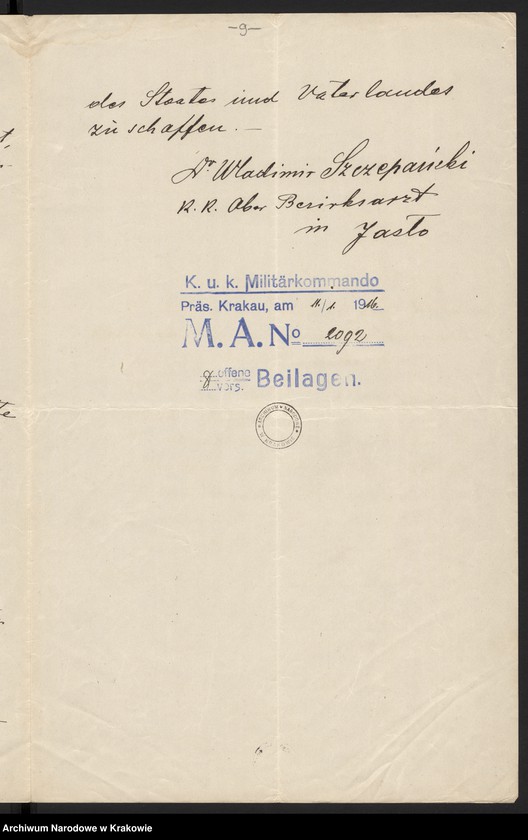 -9-
des Staates und Vaterlandes
zu schaffen. —
Dr Wladimir Szczepański
k. k. Ober Bezirksarzt
in Jasło
K. u. k. Militärkommando
Präs. Krakau, am 11/1. 1916.
M. A. No 2092
offene
vers. Beilagen.
Archiwum Narodowe w Krakowie